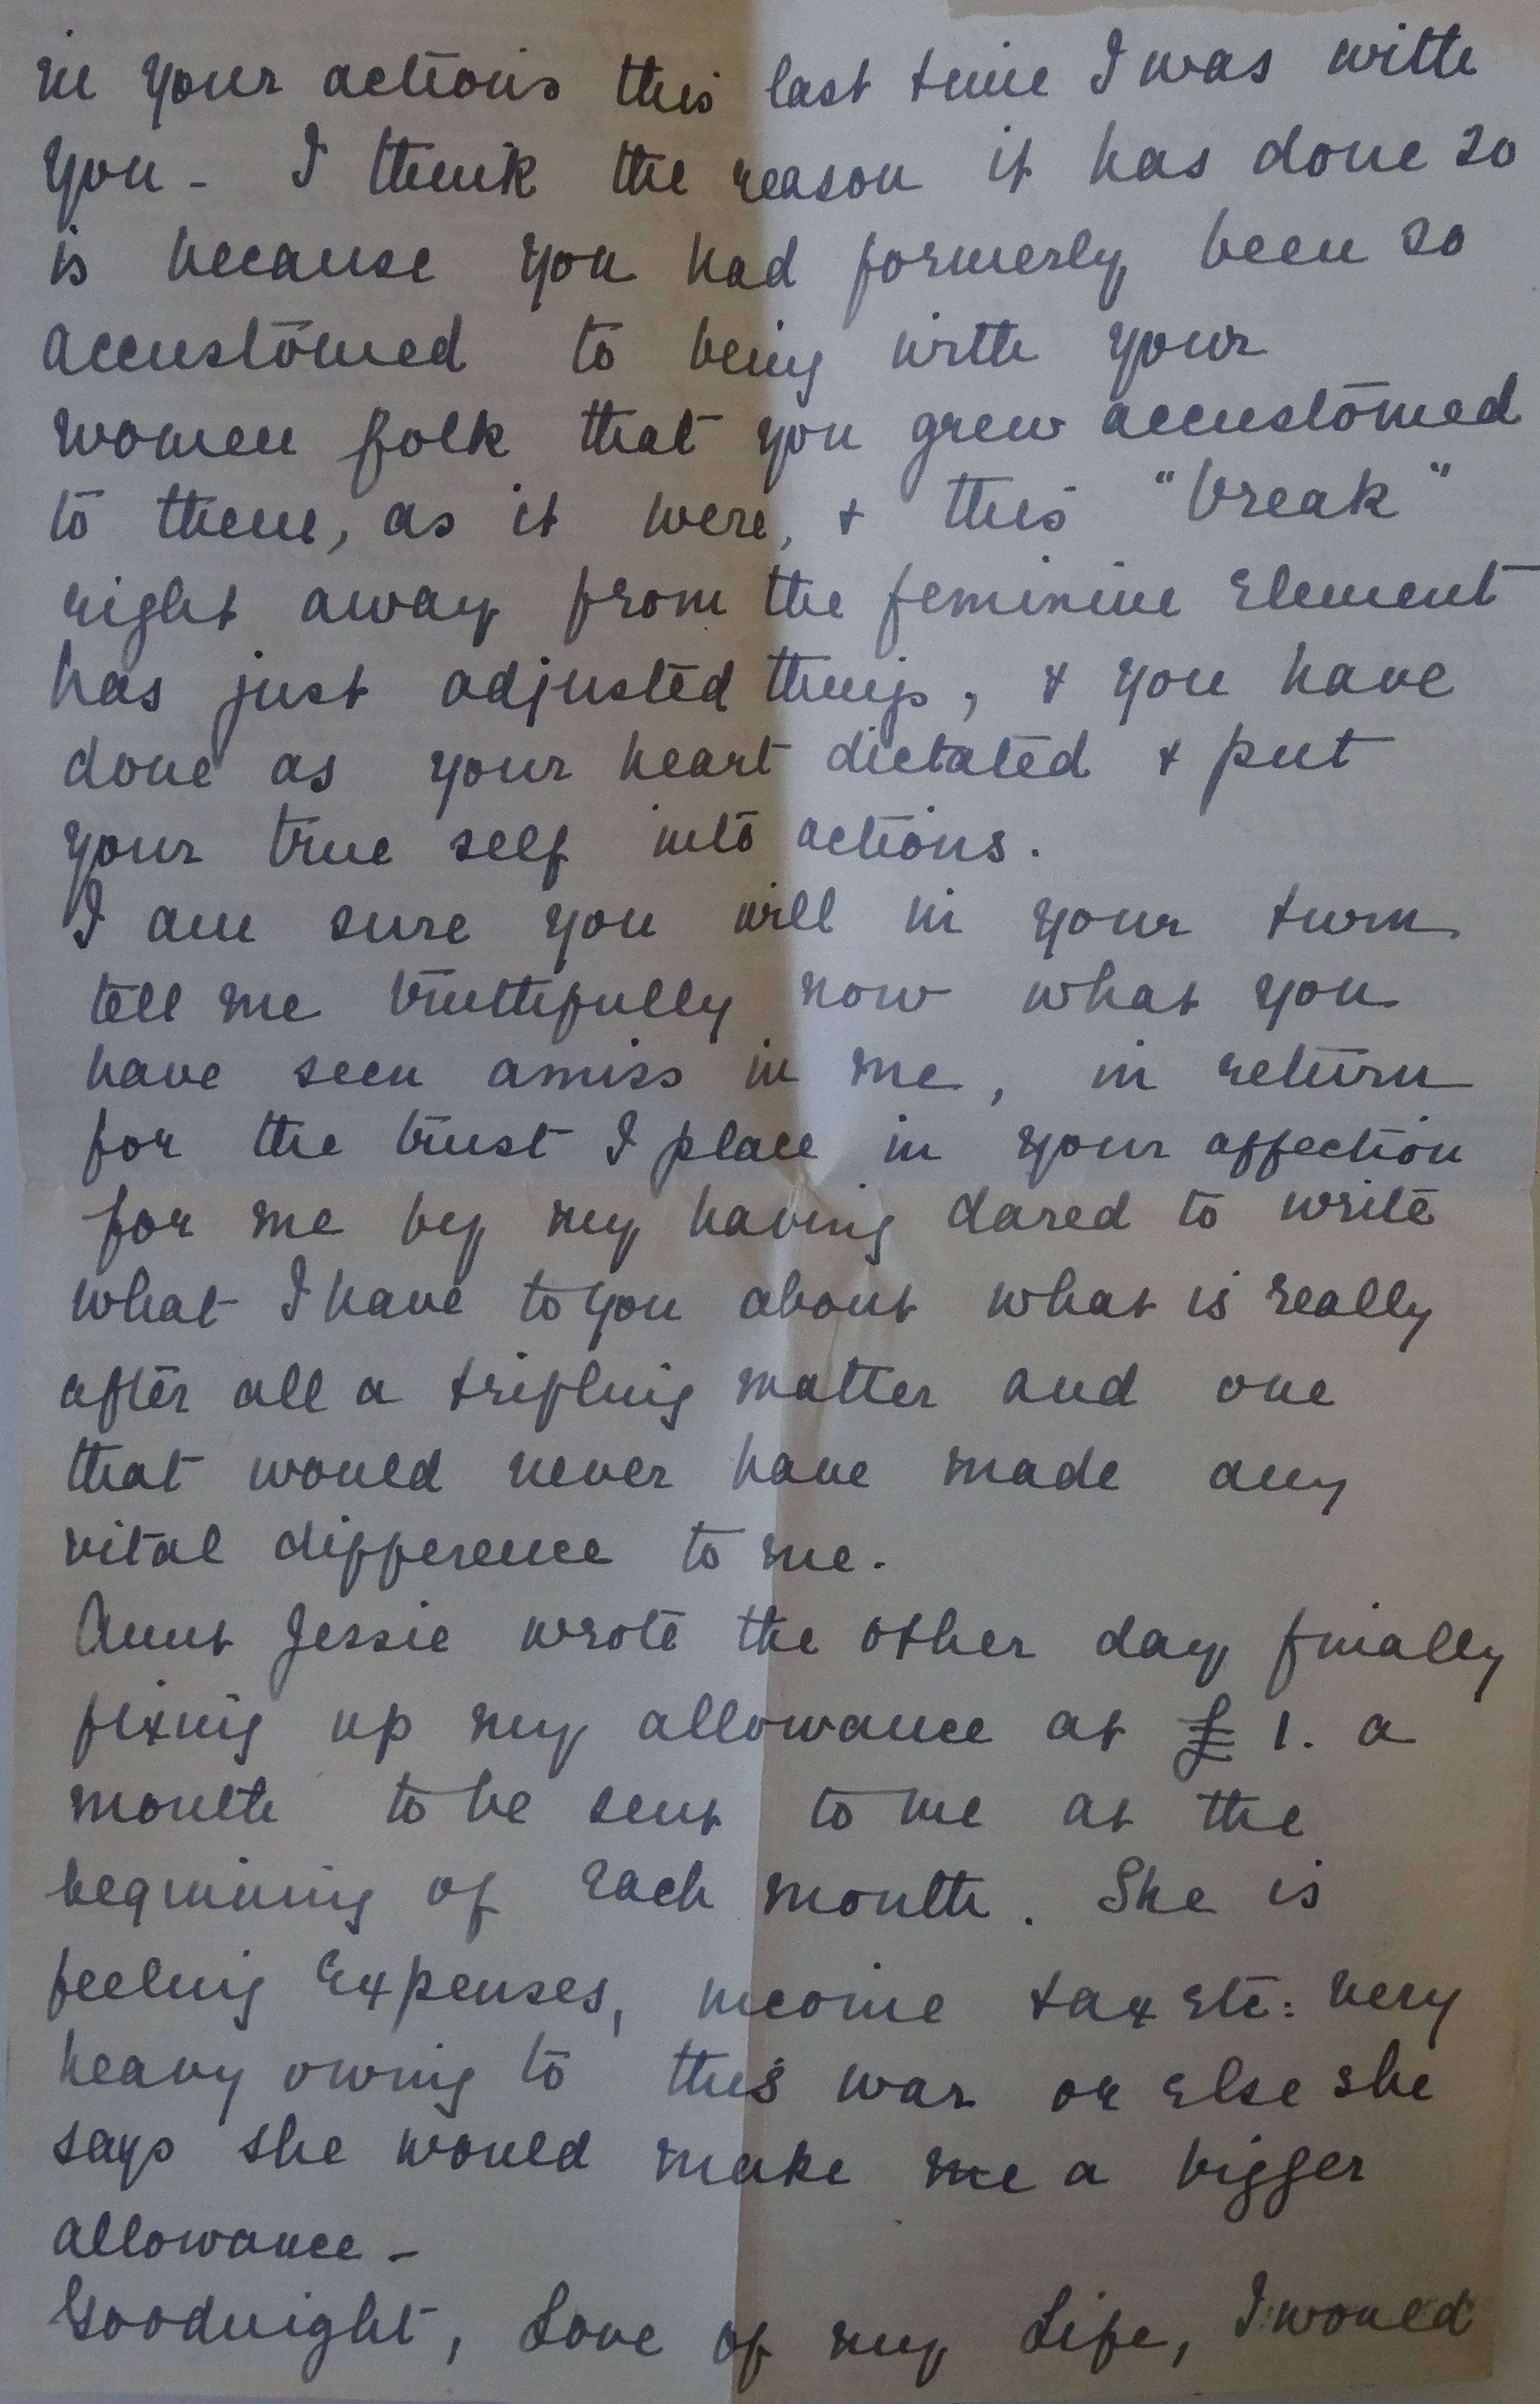 in your actions this last time I was with
you - I think the reason it has done so
is because you had formerly been so
accustomed to being with your
women folk that you grew accustomed
to them, as it were, & this "break"
right away from the feminine element
has just adjusted things, & you have
done as your heart dictated & put
your true self into actions.
I am sure you will in your turn
tell me truthfully now what you
have seen amiss in me, in return
for the trust I place in your affection
for me by my having dared to write
what I have to you about what is really
after all a trifling matter and one
that would never have made any
vital difference to me.
Aunt Jessie wrote the other day finally
fixing up my allowance at £1. a
month to be sent to me at the
beginning of each month. She is
feeling expenses, income tax etc: very
heavy owing to this war or else she
says she would make me a bigger
allowance -
Goodnight, Love of my Life, I would